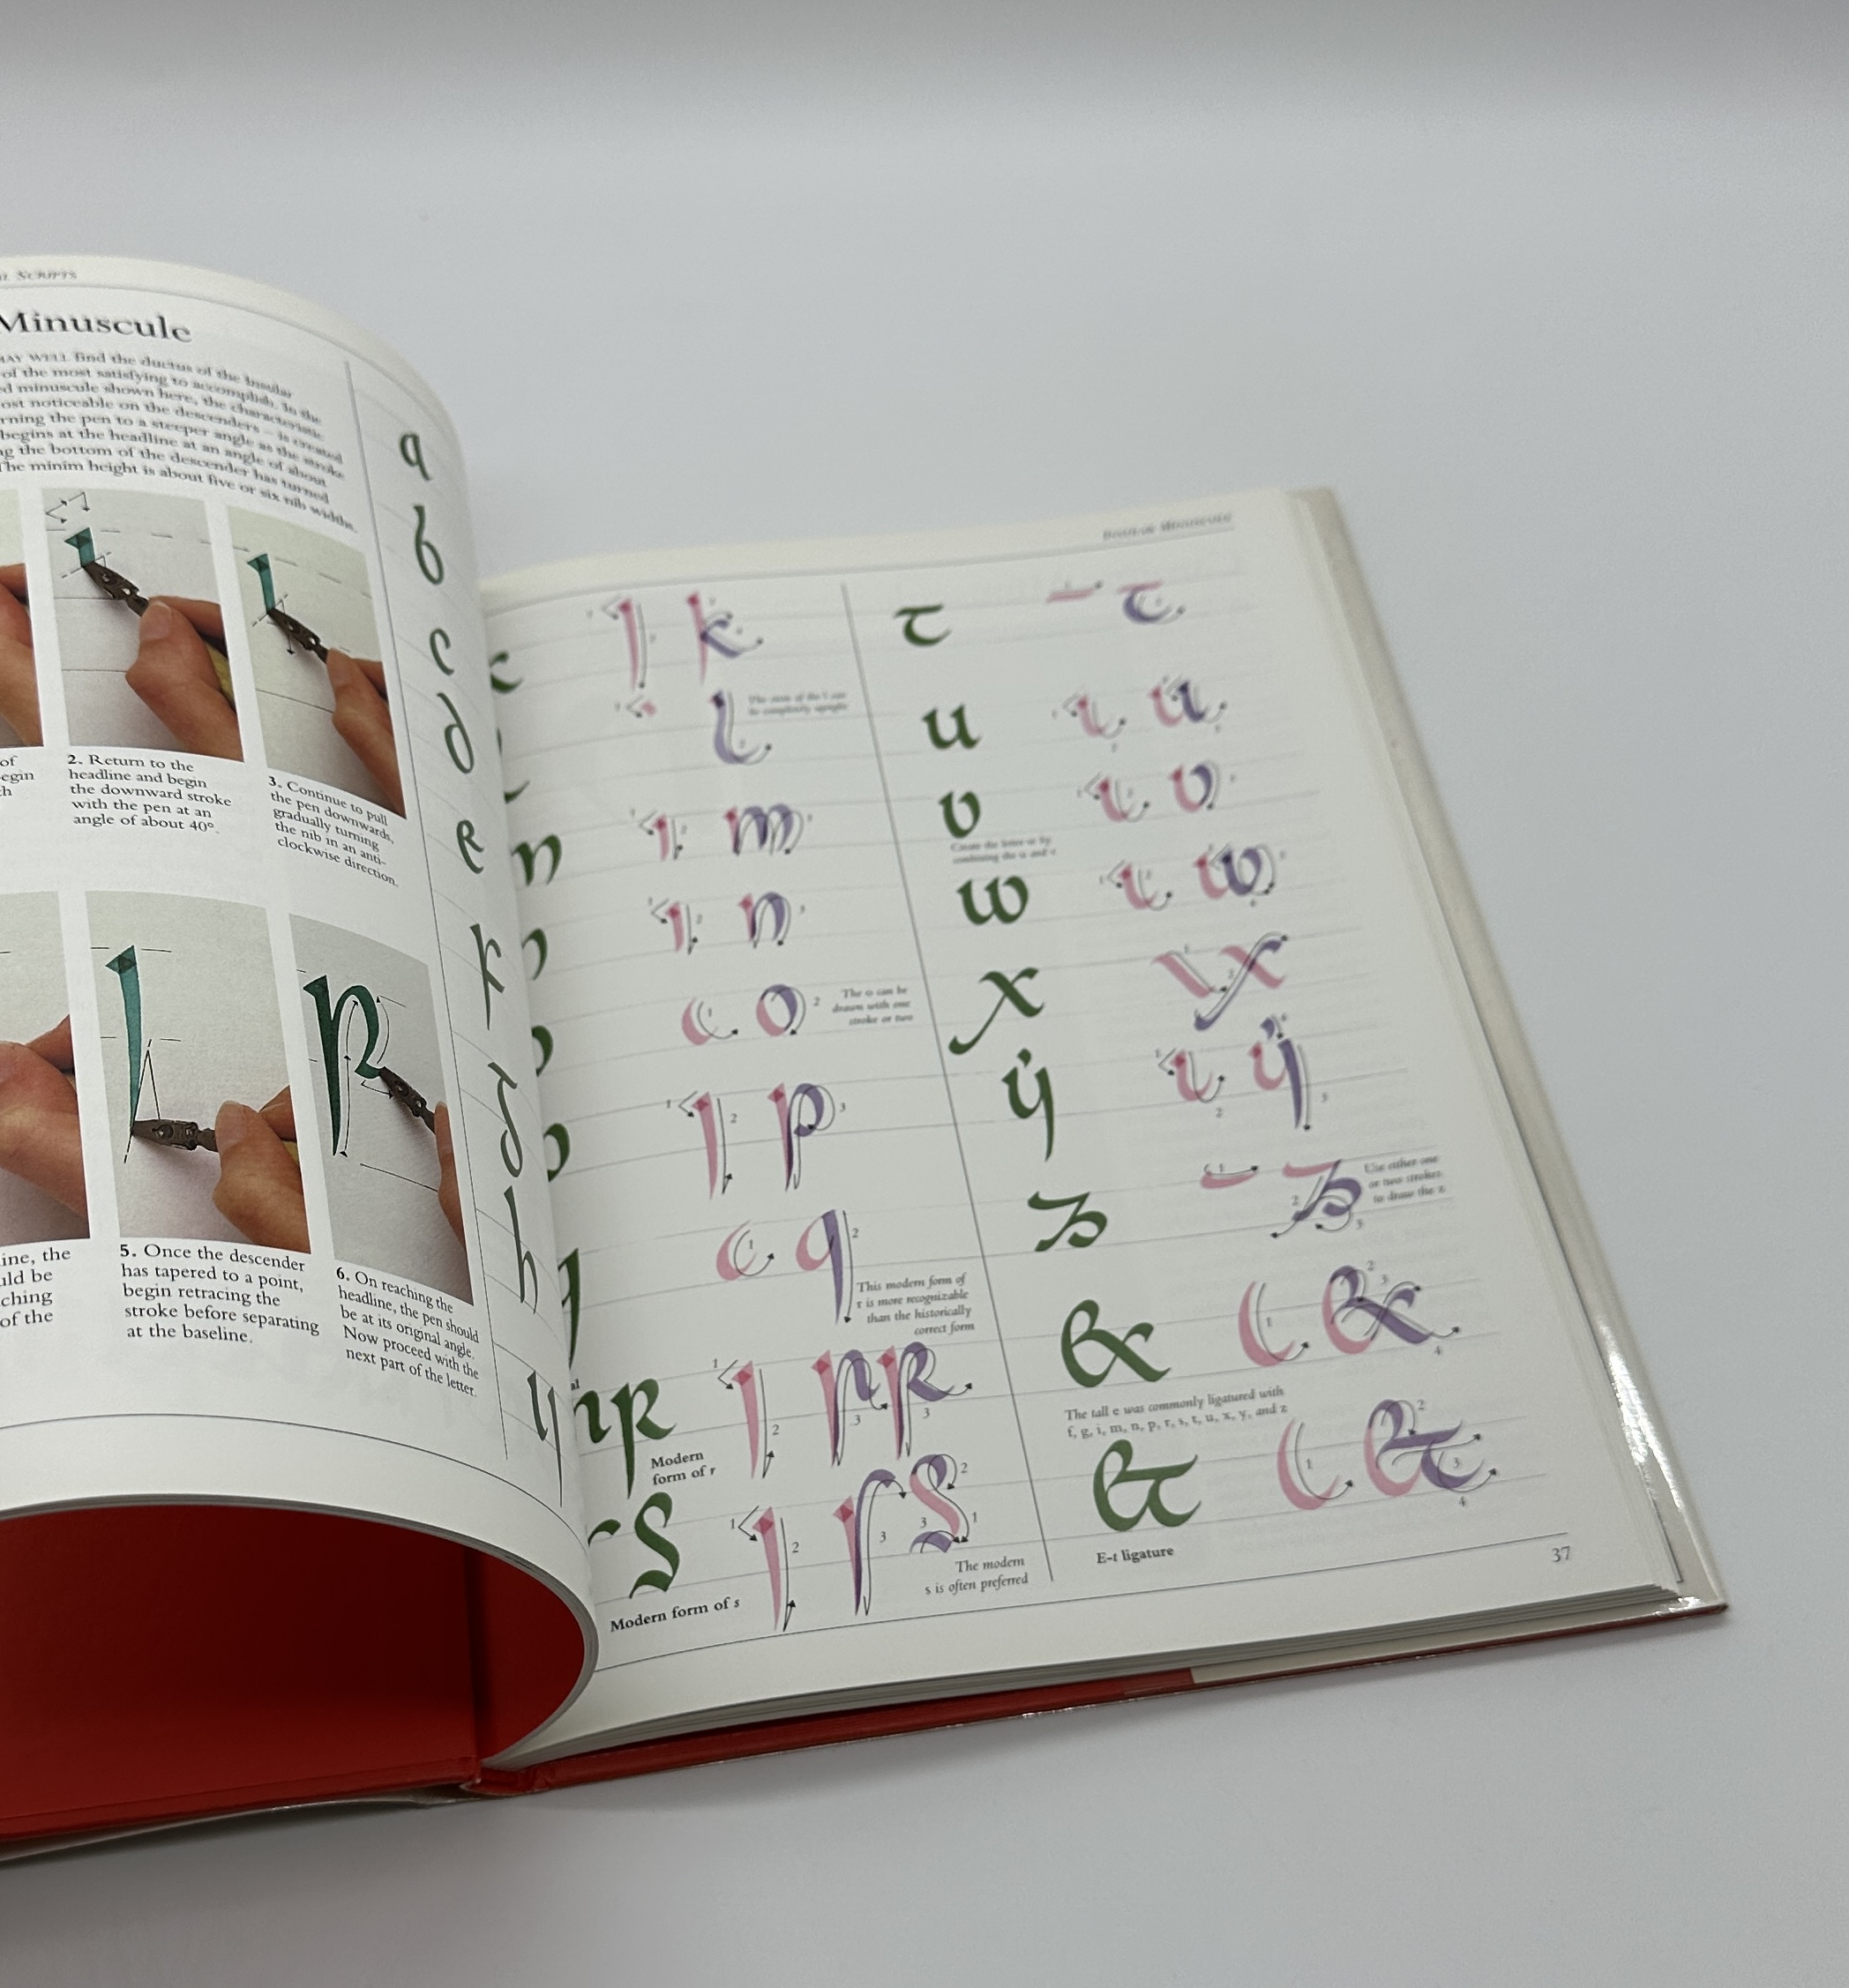 SCRIPTS
Minuscule
MAY WELL find the ductus of the Insular
of the most satisfying to accomplish. In the
minuscule shown here, the characteristic
most noticeable on the descenders – is created
the pen to a steeper angle as the stroke
begins at the headline at an angle of about
the bottom of the descender has turned
The minim height is about five or six nib widths.
of
2. Return to the
headline and begin
the downward stroke
with the pen at an
angle of about 40°.
3. Continue to pull
the pen downwards,
gradually turning
the nib in an anti-
clockwise direction.
ine, the
uld be
ching
of the
5. Once the descender
has tapered to a point,
begin retracing the
stroke before separating
at the baseline.
6. On reaching the
headline, the pen should
be at its original angle.
Now proceed with the
next part of the letter.
a
b
c
d
e
k
h
y
k
The of the t can
be completely upright
m
n
The o can be
drawn with one
stroke or two
p
q
This modern form of
r is more recognizable
than the historically
correct form
Modern
form of r
s
The modern
s is often preferred
Modern form of s
t
u
v
Create the letter w by
combining the u and v
w
x
y
z
Use either one
or two strokes
to draw the z
&
The tall e was commonly ligatured with
f, g, i, m, n, p, r, s, t, u, x, y, and z
&
E-t ligature
37